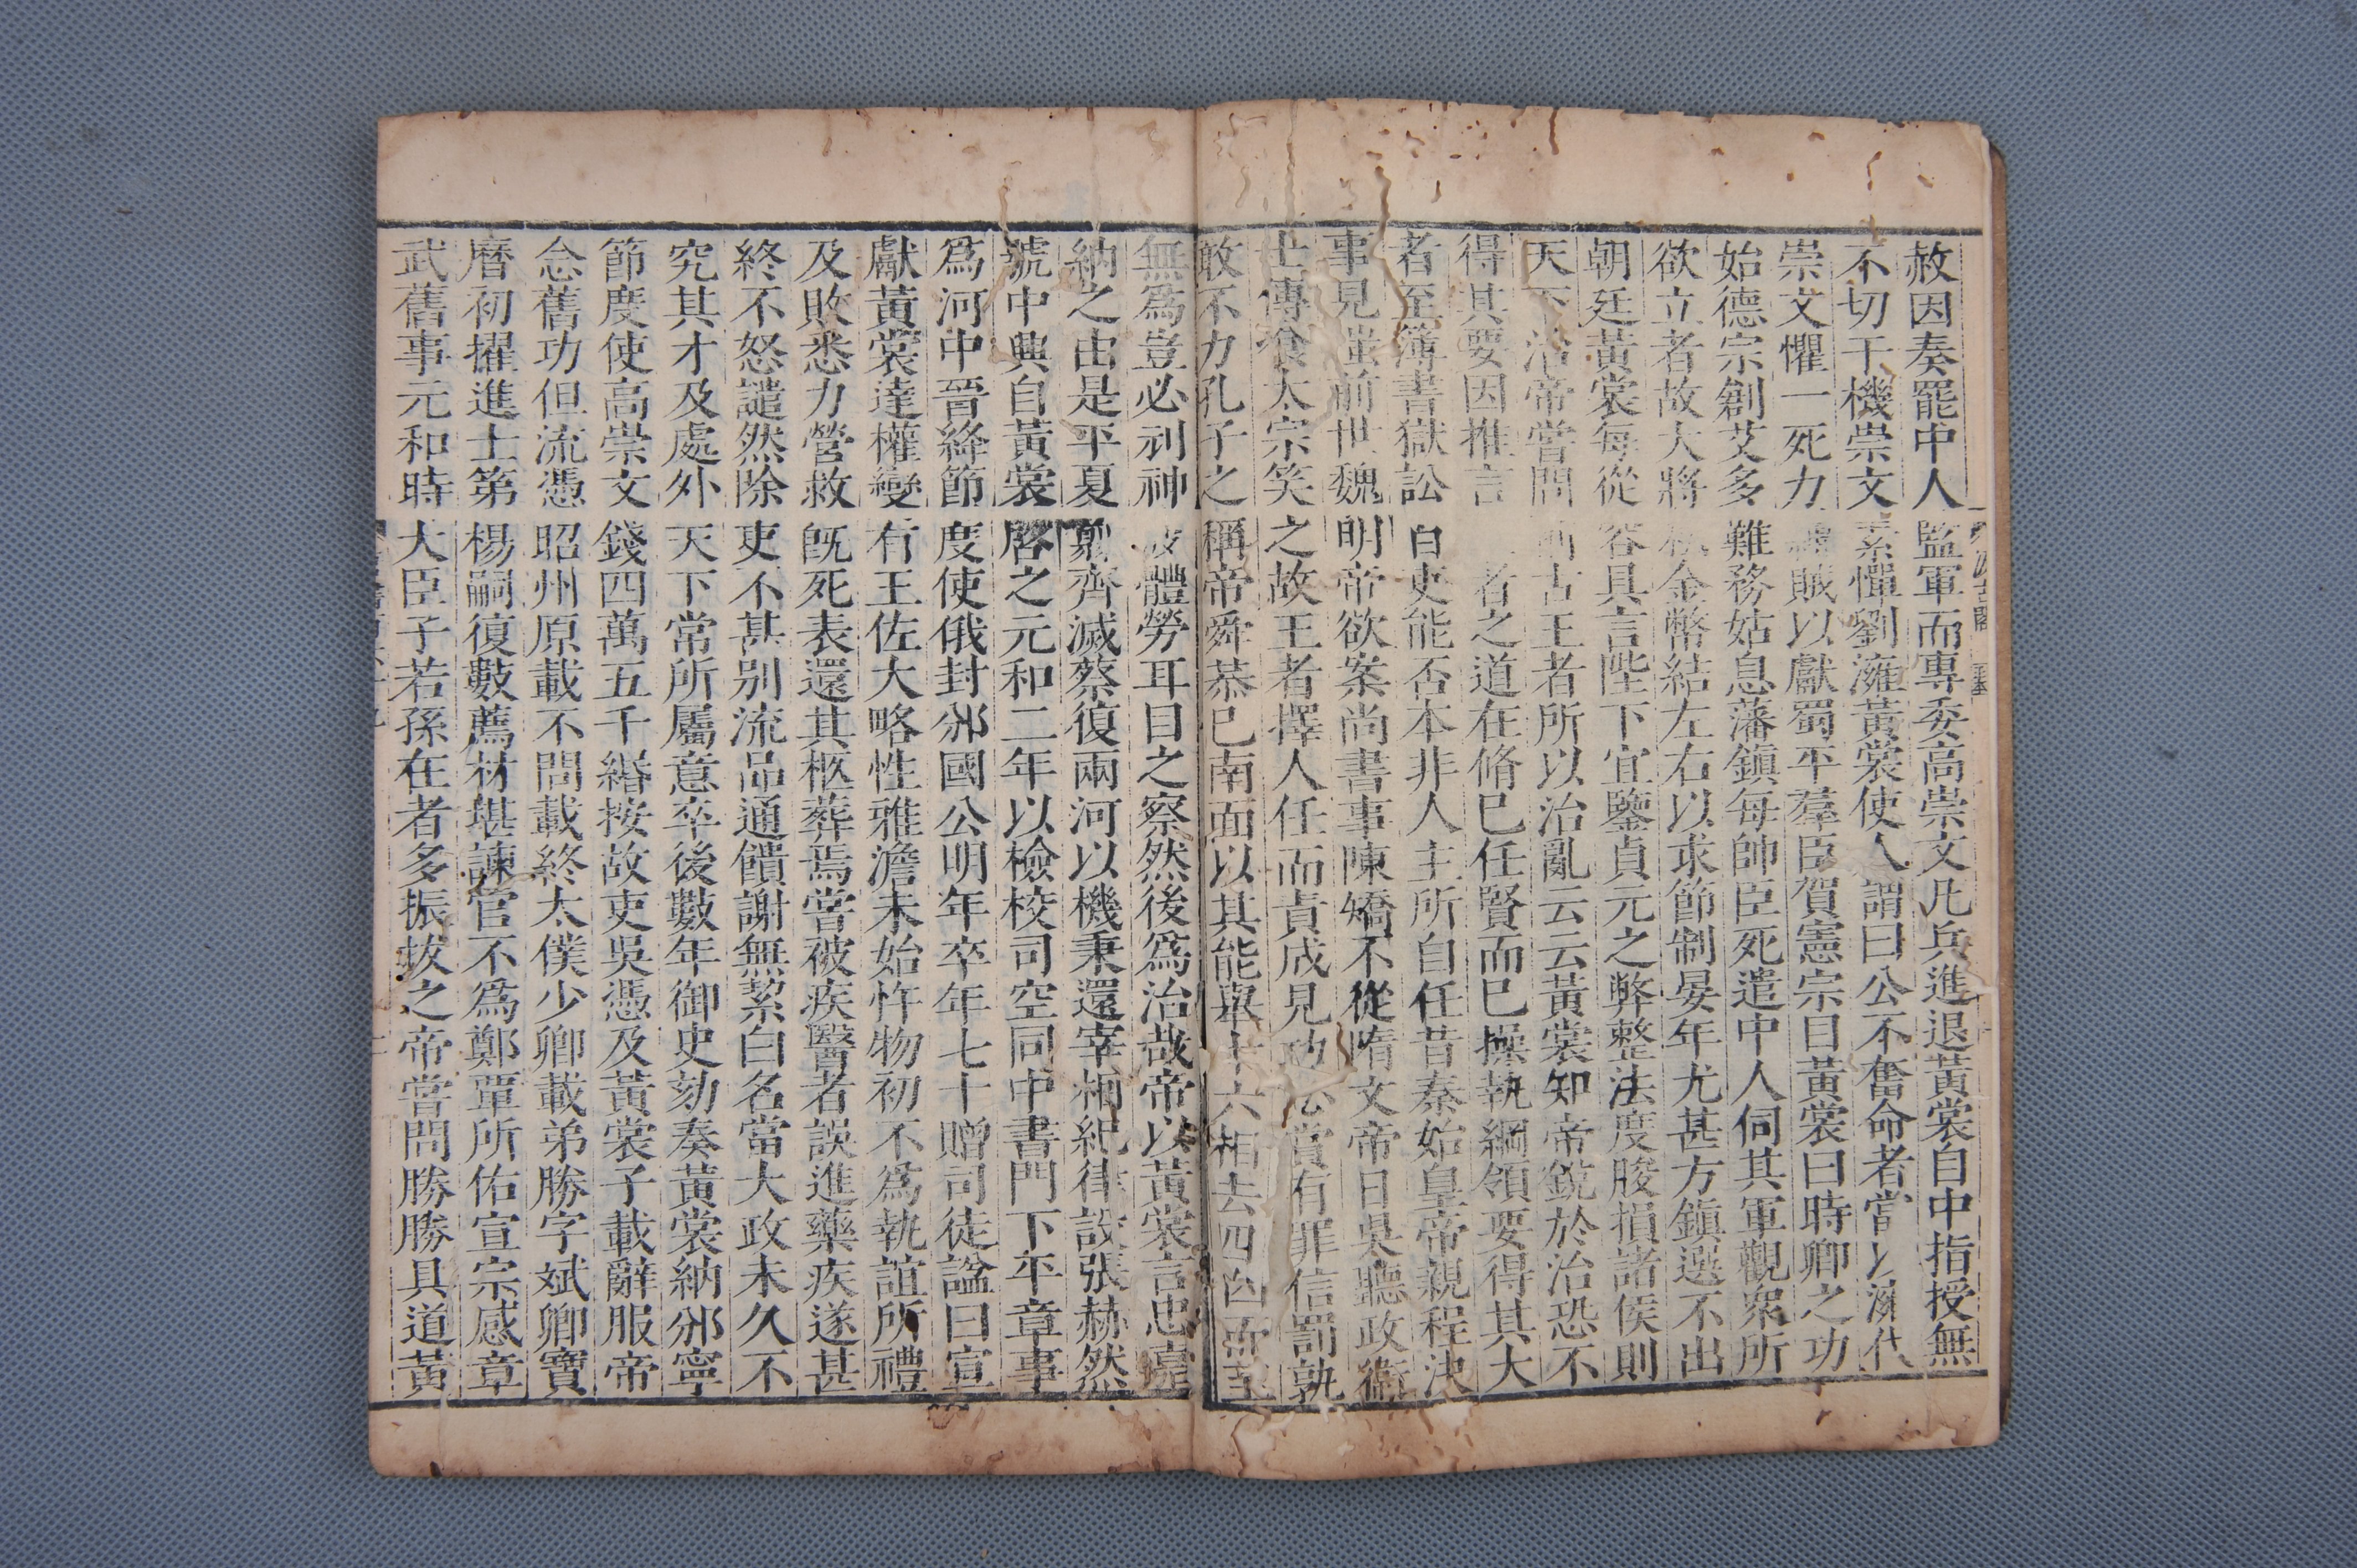 赦因奏罷中人監軍而專委高崇文凡兵進退黃裳自中指授無
不切于機崇文素憚劉澭黃裳使人謂曰公不奮命者當以澭代
崇文懼一死力縛賊以獻蜀平羣臣賀憲宗目黃裳曰時卿之功
始德宗創艾多難務姑息藩鎮每帥臣死遣中人伺其軍觀衆所
欲立者故大將私金幣結左右以求節制晏年尤甚方鎮選不出
朝廷黃裳每從容具言陛下宜鑒貞元之弊整法度朘損諸侯則
天下治帝嘗問前古王者所以治亂云云黃裳知帝銳於治恐不
得其要因推言者之道在脩己任賢而已操執綱領要得其大
者至簿書獄訟百吏能否本非人主所自任昔秦始皇帝親程決
事見蚩前世魏明帝欲案尚書事陳矯不從隋文帝日昃聽政衛
士傳飧太宗笑之故王者擇人任而責成見功必賞有罪信罰孰
敢不力孔子之稱帝舜恭己南面以其能舉十六相去四凶而至
無爲豈必刓神疲體勞耳目之察然後爲治哉帝以黃裳言忠嘉
納之由是平夏翦齊滅蔡復兩河以機秉還宰相紀律設張赫然
號中興自黃裳啓之元和二年以檢校司空同中書門下平章事
爲河中晉絳節度使俄封邠國公明年卒年七十贈司徒諡曰宣
獻黃裳達權變有王佐大略性雅澹未始忤物初不爲執誼所禮
及敗悉力營救旣死表還其柩葬焉嘗被疾醫者誤進藥疾遂甚
終不怒譴然除吏不甚別流品通饋謝無絜白名當大政未久不
究其才及處外天下常所屬意卒後數年御史劾奏黃裳納邠寧
節度使高崇文錢四萬五千緡按故吏吳憑及黃裳子載辭服帝
念舊功但流憑昭州原載不問載終太僕少卿載弟勝字斌卿寶
曆初擢進士第楊嗣復數薦材堪諫官不爲鄭覃所佑宣宗感章
武舊事元和時大臣子若孫在者多振拔之帝嘗問勝勝具道黃